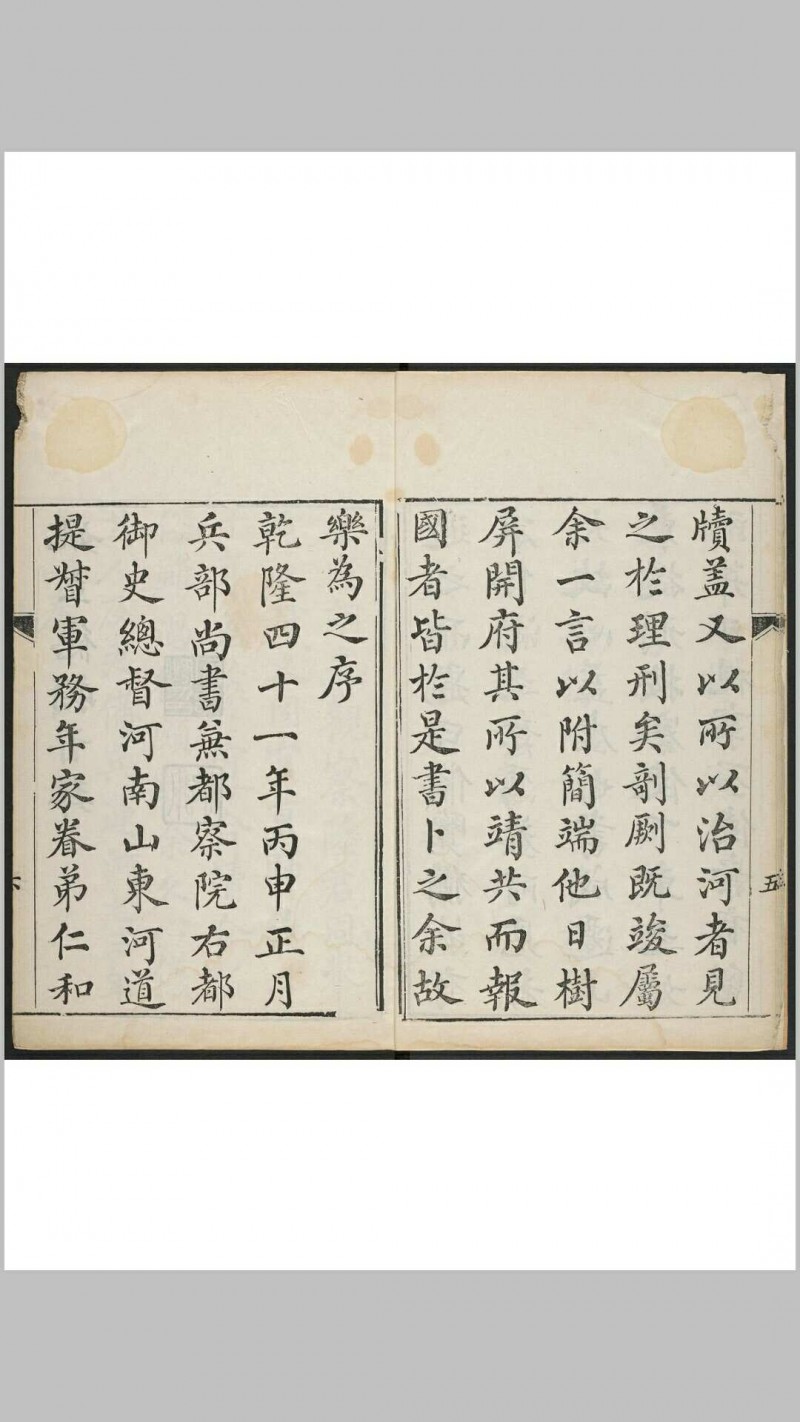 牘盖又以所以治河者見
之扵理刑矣剞劂既竣屬
余一言以附簡端他日樹
屏開府其所以靖共而報
國者皆扵是書卜之余故
五
樂為之序
乾隆四十一年丙申正月
兵部尚書兼都察院右都
御史總督河南山東河道
提督軍務年家眷弟仁和